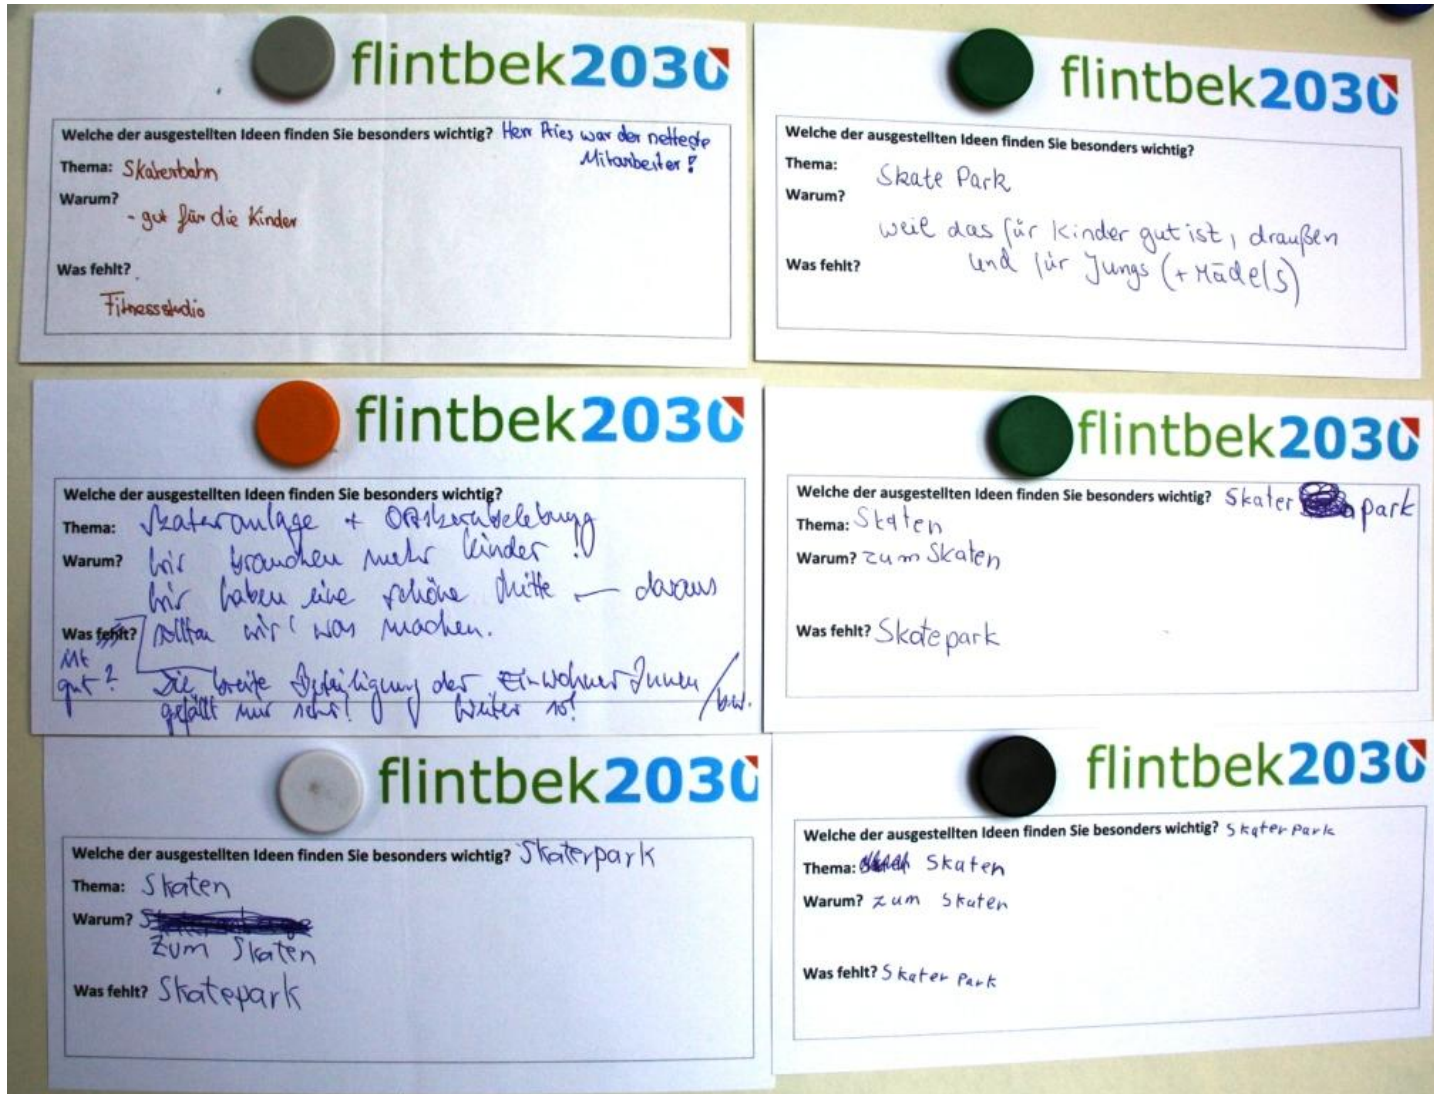 flintbek2030
Welche der ausgestellten Ideen finden Sie besonders wichtig? Herr Pries war der netteste
Mitarbeiter!
Thema: Skaterbahn
Warum?
- gut für die Kinder
Was fehlt?
Fitnessstudio
flintbek2030
Welche der ausgestellten Ideen finden Sie besonders wichtig?
Thema: Skate Park
Warum?
weil das für Kinder gut ist, draußen
Was fehlt? und für Jungs (+ Mädels)
flintbek2030
Welche der ausgestellten Ideen finden Sie besonders wichtig?
Thema: Skateranlage + Ortskernbelebung
Warum? Wir brauchen mehr Kinder!
Wir haben eine schöne Mitte — daraus
Was fehlt? sollten wir was machen.
ist
gut? Die breite Beteiligung der EinwohnerInnen
gefällt mir sehr! Weiter so!
flintbek2030
Welche der ausgestellten Ideen finden Sie besonders wichtig? Skater park
Thema: Skaten
Warum? zum Skaten
Was fehlt? Skatepark
flintbek2030
Welche der ausgestellten Ideen finden Sie besonders wichtig? Skaterpark
Thema: Skaten
Warum?
Zum Skaten
Was fehlt? Skatepark
flintbek2030
Welche der ausgestellten Ideen finden Sie besonders wichtig? Skater Park
Thema: Skaten
Warum? zum Skaten
Was fehlt? Skater Park